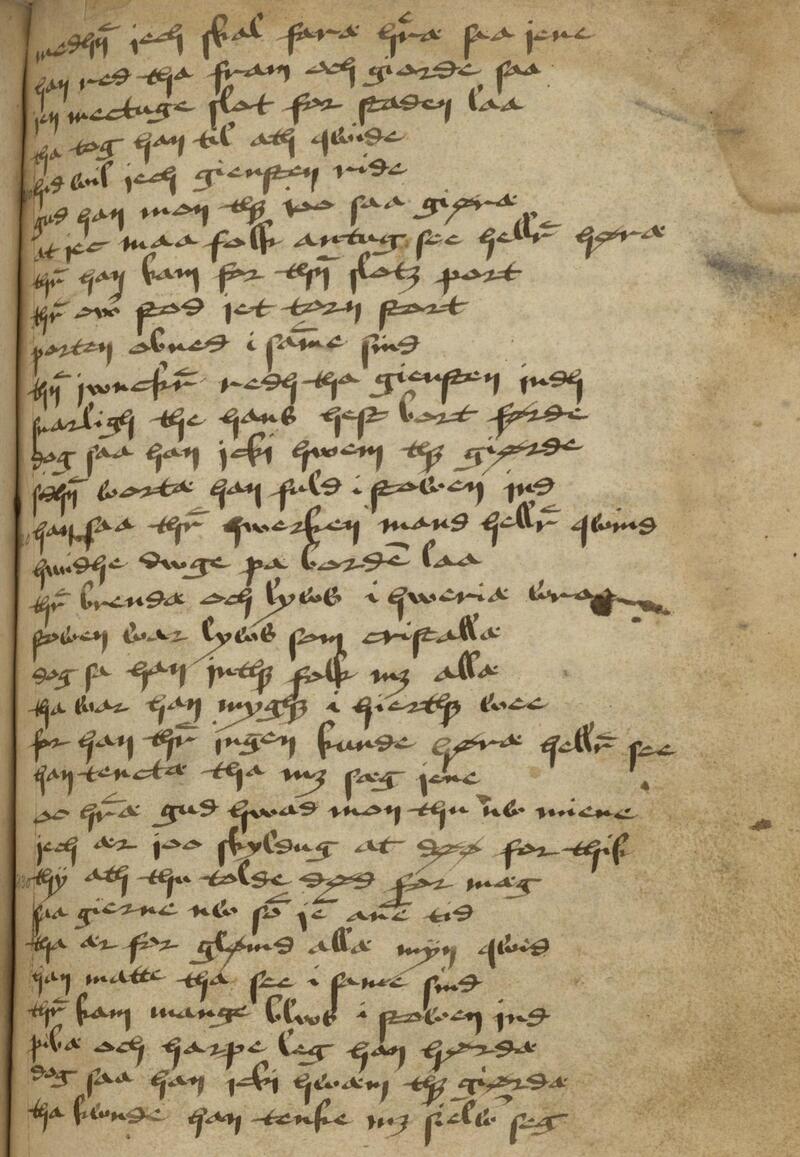 medhn̄ jech skal faræ hr̄æ saa jene
han red tha fram och giorde saa
jen mectuge slot for staden laa
tha tog han til ath qwide
hid wil jech giensten ride
gud han mon thꝫ joo saa giøræ
at jec maa folk antug see hellr̄ høræ
thr̄ han kam for thn̄ slotꝫ port
thr̄ ow̄ stod jet torn stort
porten obned i sam̄e sind
thn̄ jwnckr̄ redh tha giensten indh
snarligh the hans hest bort førde
dog saa han icki hwem thꝫ giørde
sidhn̄ wortæ han fuld i stowen ind
han saa thr̄ hwerken mand hellr̄ qwind
hwidhe dwge pa bordē laa
thr̄ brendæ och lyws i hweriæ wraa
stowen war lyws som cristallæ
dog sa han inthꝫ folk mꝫ allæ
tha war han myghꝫ i hierthꝫ wee
for han thr̄ ingen kunde høræ hellr̄ see
han tenctæ tha mꝫ sæg jene
oo hr̄æ gud hwad mon thu nw miene
jech ær joo skyldug at døø for thik
thy ath thu tolde død for mæg
saa gierne nw sō jē anē tid
tha ær for glømd allæ myn qwid
han matte tha see i same sind
thr̄ kam mange blws i stowen ind
pibæ och harpe leg han hørdæ
dog saa han icki hwæm thꝫ giørdæ
tha kwnde han tenke mꝫ sielw seg